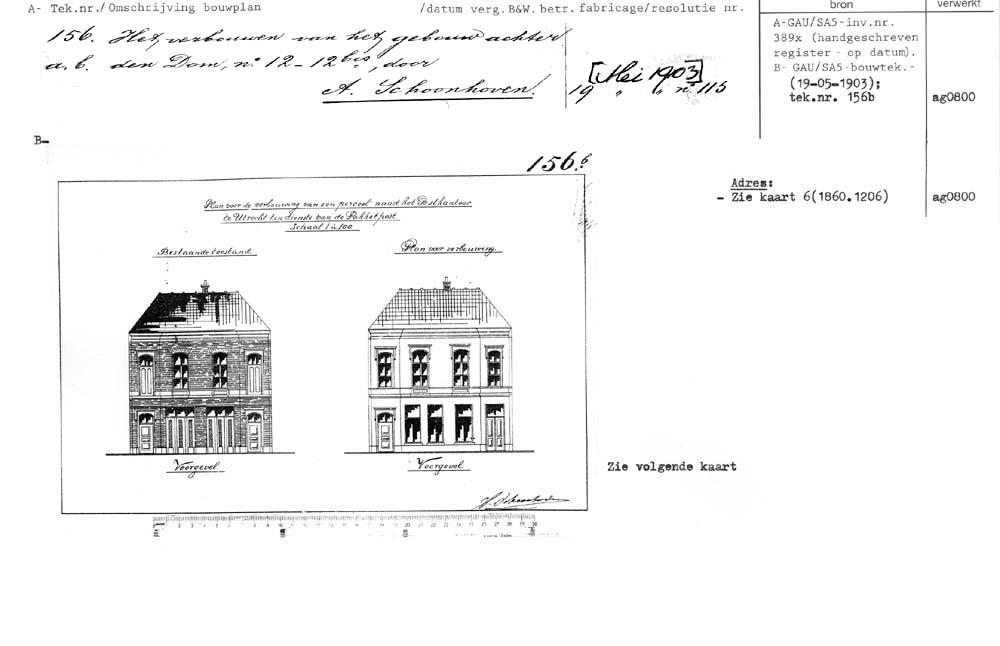 A- Tek.nr./ Omschrijving bouwplan /datum verg.B&W. betr. fabricage/resolutie nr.
bron
verwerkt
156. Het verbouwen van het gebouw achter
a.b. den Dom, nº 12-12bis, door
A. Schoonhoven.
[Mei 1903]
19 " " nº 115
A-GAU/SA5-inv.nr.
389x (handgeschreven
register - op datum).
B- GAU/SA5-bouwtek.-
(19-05-1903);
tek.nr. 156b
ag0800
B-
156.b
Adres:
- Zie kaart 6(1860.1206)
ag0800
Plan voor de verbouwing van een perceel naast het Postkantoor
te Utrecht ten dienste van de Pakketpost
Schaal 1 à 100
Bestaande toestand.
Plan voor verbouwing.
Voorgevel
Voorgevel
Zie volgende kaart